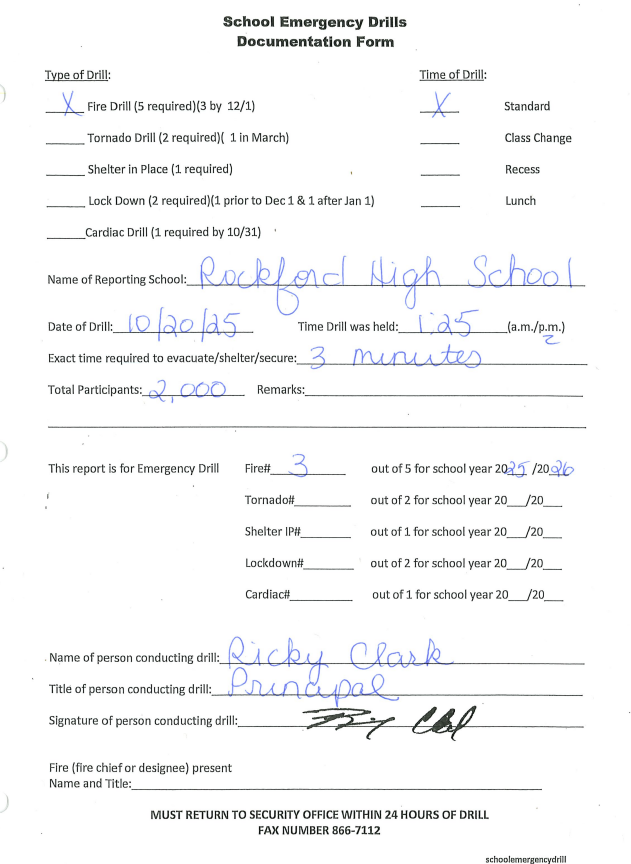 School Emergency Drills
Documentation Form
Type of Drill: Time of Drill:
X Fire Drill (5 required)(3 by 12/1) X Standard
______ Tornado Drill (2 required)( 1 in March) ______ Class Change
______ Shelter in Place (1 required) ______ Recess
______ Lock Down (2 required)(1 prior to Dec 1 & 1 after Jan 1) ______ Lunch
______Cardiac Drill (1 required by 10/31)
Name of Reporting School: Rockford High School
Date of Drill: 10/20/25 Time Drill was held: 1:25 (a.m./p.m.)
Exact time required to evacuate/shelter/secure: 3 minutes
Total Participants: 2,000 Remarks:
This report is for Emergency Drill Fire# 3 out of 5 for school year 2025/2026
Tornado#________ out of 2 for school year 20___/20___
Shelter IP#________ out of 1 for school year 20___/20___
Lockdown#________ out of 2 for school year 20___/20___
Cardiac#________ out of 1 for school year 20___/20___
Name of person conducting drill: Ricky Clark
Title of person conducting drill: Principal
Signature of person conducting drill:
Fire (fire chief or designee) present
Name and Title:
MUST RETURN TO SECURITY OFFICE WITHIN 24 HOURS OF DRILL
FAX NUMBER 866-7112
schoolemergencydrill